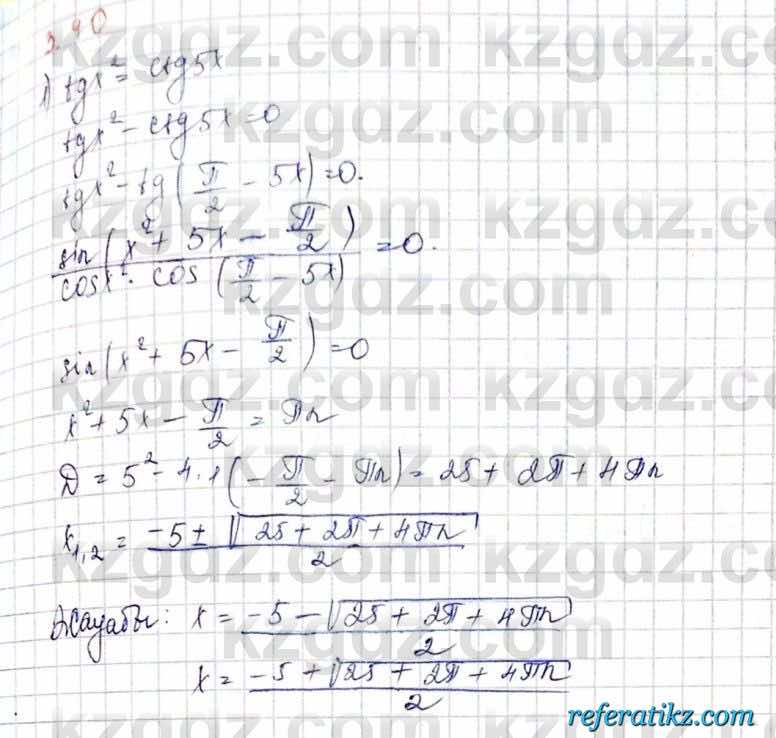 290
1) tgx² = ctg5x
tgx² - ctg5x = 0
tgx² - tg(π/2 - 5x) = 0.
sin(x² + 5x - π/2) / cosx² · cos(π/2 - 5x) = 0.
sin(x² + 5x - π/2) = 0
x² + 5x - π/2 = πn
D = 5² - 4·1(-π/2 - πn) = 25 + 2π + 4πn
x₁,₂ = (-5 ± √(25 + 2π + 4πn)) / 2
Жауабы: x = (-5 - √(25 + 2π + 4πn)) / 2
x = (-5 + √(25 + 2π + 4πn)) / 2
kzgdz.com
referatikz.com